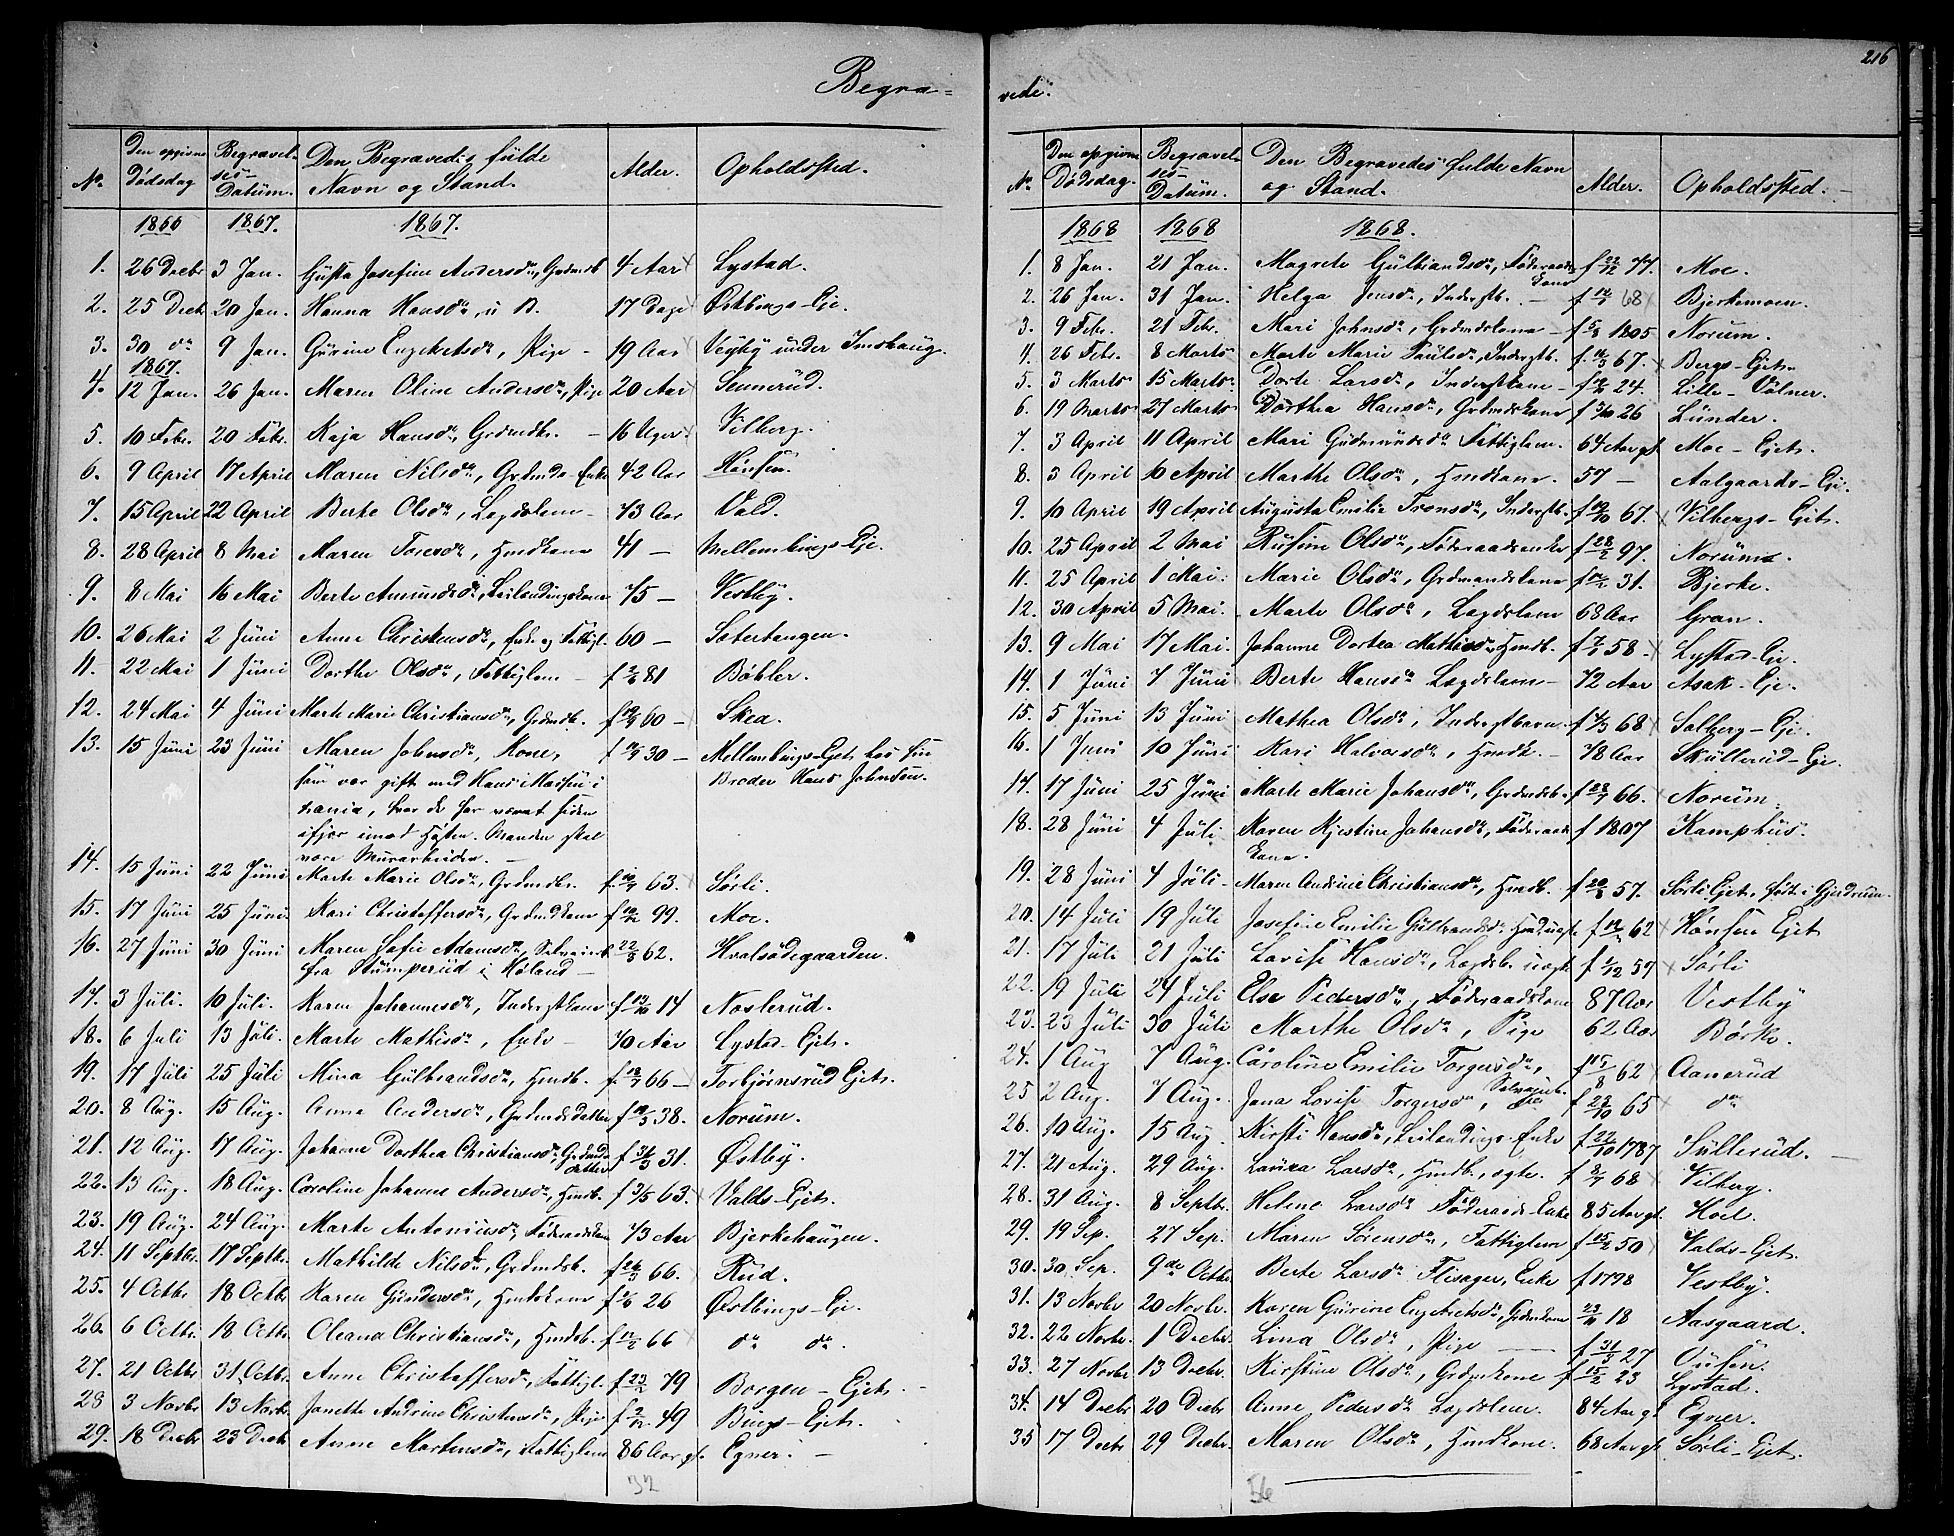 216
Begra=
vede.
No. Den opgivne Dødsdag Begravelses-Datum. Den Begravedes fulde Navn og Stand. Alder. Opholdssted.
1866 1867. 1867.
1. 26 Decbr 3 Jan. Gusta Josefine Andersdr, Grdmdb 4 Aar Lystad.
2. 25 Decbr 20 Jan. Hanna Hansdr, u. B. 17 Dage Østbyngs-Eje.
3. 30 dr 9 Jan. Gurine Engebretsdr, Pige - 19 Aar Vegby under Imshaug.
1867.
4. 12 Jan. 26 Jan. Maren Oline Andersdr, Pige 20 Aar Sennerud.
5. 10 Febr. 20 Febr. Kaja Hansdr, Grdmdb. - 16 Uger Vilberg.
6. 9 April 17 April Maren Nilsdr, Grdmds-Enke 42 Aar Hønsen.
7. 15 April 22 April Berte Olsdr, Lægdslem - 73 Aar Vald.
8. 28 April 8 Mai Maren Toresdr, Hmdkone 41 - Mellembyngs-Eje.
9. 8 Mai 16 Mai Berte Amundsdr, Leilændingskone 75 - Vestby.
10. 26 Mai 2 Juni Anne Christensdr, Enke og Fattigl. 60 - Sætertangen.
11. 22 Mai 1 Juni Dorthe Olsdr, Fattiglem - f 2/6 81 Bøhler.
12. 24 Mai 4 Juni Marte Marie Christiansdr, Grdmdb. f 60 - Skea.
13. 15 Juni 23 Juni Maren Johnsdr, Kone, f 30 - Mellembyngs-Ejet hos sin
som var gift med Hans i Broder Hans Johnsen.
xania, hvor de har været siden
ifjor imod Høsten. Manden skal
være Murarbeider. -
14. 15 Juni 22 Juni Marte Marie Olsdr, Grdmdb. f. 63. Sørli.
15. 17 Juni 25 Juni Kari Christoffersdr, Grdmdkone f 99. Moe.
16. 27 Juni 30 Juni Maren Sofie Adamsdr, 22/5 62. Hvalsødegaarden.
fra i Høland -
17. 3 Juli. 10 Juli. Karen Johannesdr, Inderstkone f 14 Noslerud.
18. 6 Juli 13 Juli. Marte Mathisdr, Enke - 70 Aar Lystad-Ejet.
19. 17 Juli 25 Juli Mina Gulbrandsdr, Hmdb. f. 66 - Torbjørnsrud Ejet.
20. 8 Aug. 15 Aug. Anna Andersdr, Grdmdsdatter f 38. Norum.
21. 12 Aug. 17 Aug. Johanne Dorthea Christiansdr, Grdmds datter f 31/3 31. Østby.
22. 13 Aug. 18 Aug. Caroline Johanne Andersdr, Hmdb. f 3/5 63. Valds-Ejet.
23. 19 Aug. 24 Aug. Marte Antoniusdr, Føderaadskone 73 Aar Bjerkehaugen.
24. 11 Septbr. 17 Septbr. Mathilde Nilsdr, Grdmdsb. f 66. Rud.
25. 4 Octbr. 18 Octbr. Karen Gundersdr, Hmdskone f 26 Østbyngs-Eje.
26. 6 Octbr. 18 Octbr. Oleana Christiansdr, Hmdsb. f 66 dr dr.
27. 21 Octbr 31 Octbr. Anne Christoffersdr, Fattigl. f 23/2 79 Borgen-Ejet. -
28 3 Novbr 13 Novbr. Janette Andrine Christensdr, Pige f 2/12 49 Bings-Ejet.
29. 18 Decbr 23 Decbr Anne Mortensdr, Fattiglem 86 Aar gl. Egner. -
32
No. Den opgivne Dødsdag. Begravelses Datum. Den Begravedes fulde Navn og Stand. Alder. Opholdssted. -
1868 1868 1868.
1. 8 Jan. 21 Jan. Magrete Gulbrandsdr, Føderaads kone f 22/12 77. Moe.
2. 26 Jan. 31 Jan. Helga Jensdr, Inderstb. - f 68 Bjerkemoen.
3. 9 Febr. 21 Febr. Mari Johnsdr, Grdmdskone - f 5/8 1805 Norum.
4. 26 Febr. 8 Marts Marte Marie Paulsdr, Inderstb. f. 67. Bergs-Ejet.
5. 3 Marts 15 Marts. Dorte Larsdr, Inderstkone - f 24. Lille-Vølner.
6. 19 Marts 27 Marts Dorthea Hansdr, Grdmdskone f 26 Lunder.
7. 3 April 11 April Mari Gudmundsdr Fattiglem. 64 Aar gl. Moe-Ejet.
8. 3 April 10 April Marthe Olsdr, Hmdkone. 57 - Aalgaards-Eje.
9. 10 April 19 April Augusta Emilie Tronsdr, Inderstb. f 67. Vilbergs-Ejet.
10. 25 April 2 Mai Rusine Olsdr, Føderaadsenke f 28/2 97. Norum.
11. 25 April 1 Mai. Marie Olsdr, Grdmandskone f 31. Bjerke.
12. 30 April 5 Mai. Marte Olsdr, Lægdslem 68 Aar Gran.
13. 9 Mai 17 Mai. Johanne Dortea Mathisdr, Hmdb. f 58 - Lystad-Eje.
14. 1 Juni 7 Juni Berte Hansdr Lægdslem - 72 Aar Asak-Eje.
15. 5 Juni 13 Juni Mathea Olsdr, Inderstbarn. f 4/3 68 Solberg-Eje.
16. 1 Juni 10 Juni Kari Halvorsdr, Hmdk. - 78 Aar Skullerud-Eje.
17. 17 Juni 25 Juni Marte Marie Johansdr, Grdmdsb. f 66. Norum.
18. 28 Juni 4 Juli Karen Kjestine Johansdr, Føderaads kone. f 1807 Kamphus.
19. 28 Juni 4 Juli - Maren Andrine Christiansdr, Hmdb. f 57. Sørli-Ejet, født i Gjerdrum.
20. 14 Juli 19 Juli Josefine Emilie Gulbrandsdr Hmd uægte f 62 Hønsen Ejet
21. 17 Juli 21 Juli Lovise Hansdr, Lægdsb. uægte f 1/12 57 Sørli
22. 19 Juli 24 Juli Else Pedersdr, Føderaadskone 87 Aar Vestby
23. 23 Juli 30 Juli Marthe Olsdr, Pige 62 Aar Børke.
24. 1 Aug 7 Aug. Caroline Emilie Torgersdr, f 15/8 62 Aanerud
25 2 Aug. 7 Aug. Jana Lovise Torgersdr, Selveierb. dr f 23/10 65 dr
26. 10 Aug. 15 Aug. Kirsti Hansdr, Leilændings-Enke f 22/10 1787 Sullerud. -
27. 21 Aug. 29 Aug. Laura Larsdr, Hmdb., ægte. f 8/7 68 Vilberg.
28. 31 Aug. 8 Septbr. Helene Larsdr Føderaads-Enke 85 Aar gl. Hoel.
29. 19 Sep. 27 Sep. Maren Sørensdr, Fattiglem f 15/2 50 Valds-Ejet.
30. 30 Sep. 9de Octbr. Berte Larsdr Flisager, Enke f 1798 Vestby.
31. 13 Novbr 20 Novbr. Karen Gurine Engebretsdr, Grdmkone 18 Aasgaard.
32. 22 Novbr. 1 Decbr. Lina Olsdr, Pige - f 31/3 27 Ousen.
33. 27 Novbr. 13 Decbr. Kirstine Olsdr, Grdmkone f 15/2 23 Lystad.
34. 14 Decbr 20 Decbr Anne Pedersdr Lægdslem. 84 Aar gl Egner.
35 17 Decbr 29 Decbr. Maren Olsdr, Hmdkone. 68 Aar gl. Sørli-Ejet.
56